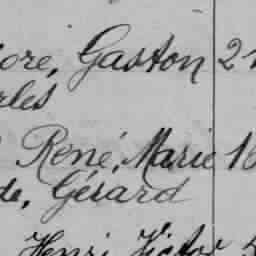 ore, Gaston 2
rles
René, Marie 16
de, Gérard
Henri Victor